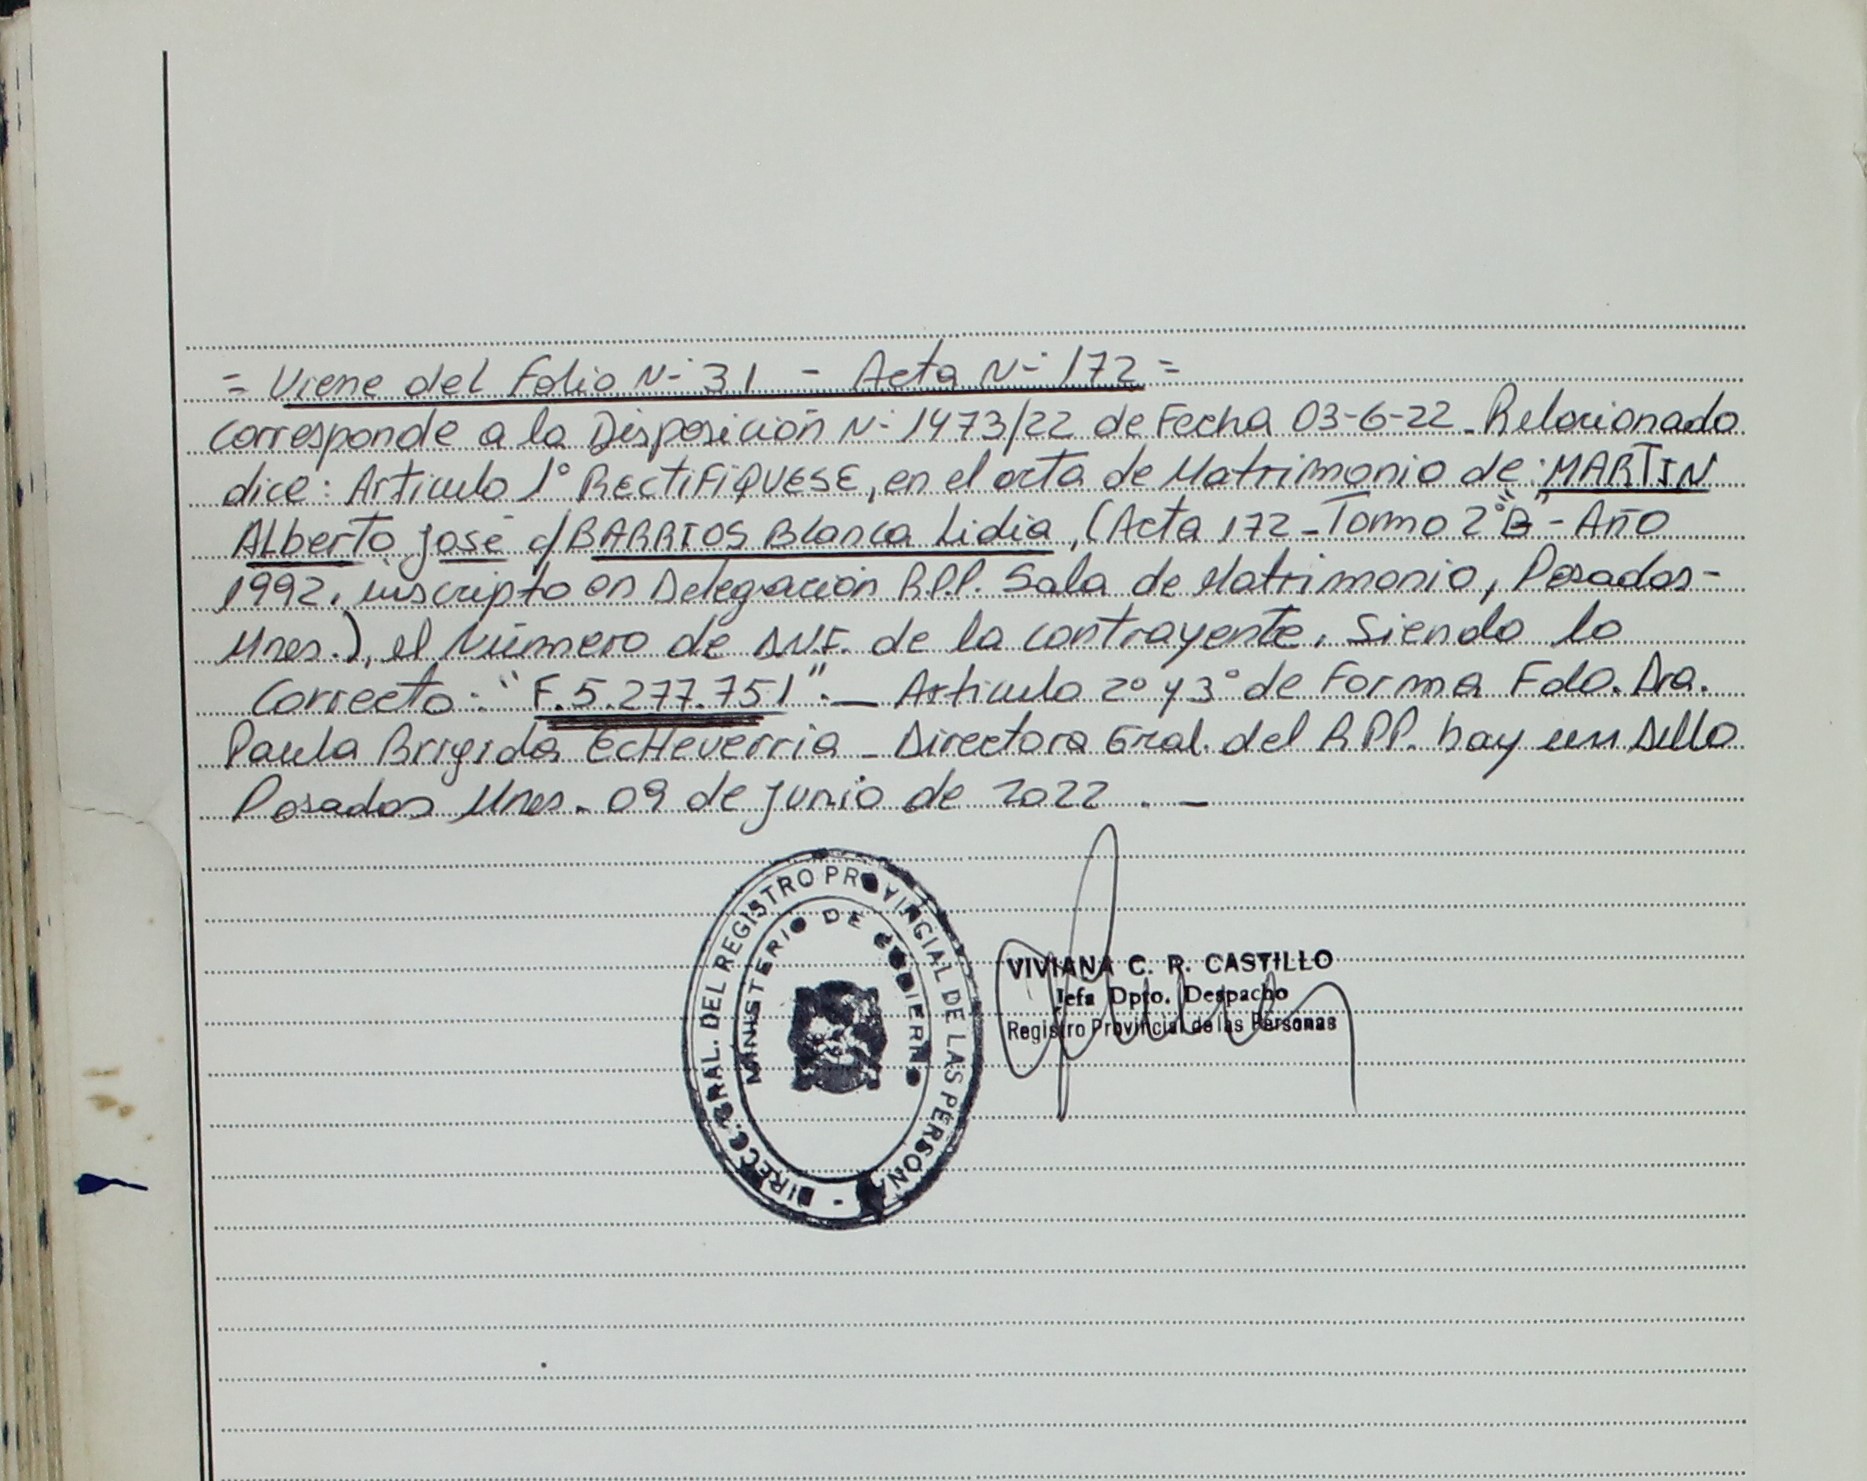 = Viene del Folio N- 31 - Acta N- 172 =
corresponde a la Disposición N- 1473/22 de Fecha 03-6-22 - Relacionado
dice: Articulo 1° RECTIFIQUESE, en el acta de Matrimonio de: MARTIN
Alberto José c/ BARRIOS Blanca Lidia, (Acta 172 - Tomo 2° "B" - Año
1992, inscripto en Delegación R.P.P. Sala de Matrimonio, Posadas-
Mnes.), el Número de D.N.I. de la contrayente, Siendo lo
Correcto: "F.5.277.751". — Articulo 2° y 3° de Forma Fdo. Dra.
Paula Brigida Echeverria - Directora Gral. del R.P.P. hay un Sello
Posadas Mnes. 09 de Junio de 2022. -
DIRECC. GRAL. DEL REGISTRO PROVINCIAL DE LAS PERSONAS -
MINISTERIO DE GOBIERNO
VIVIANA C. R. CASTILLO
Jefa Dpto. Despacho
Registro Provincial de las Personas